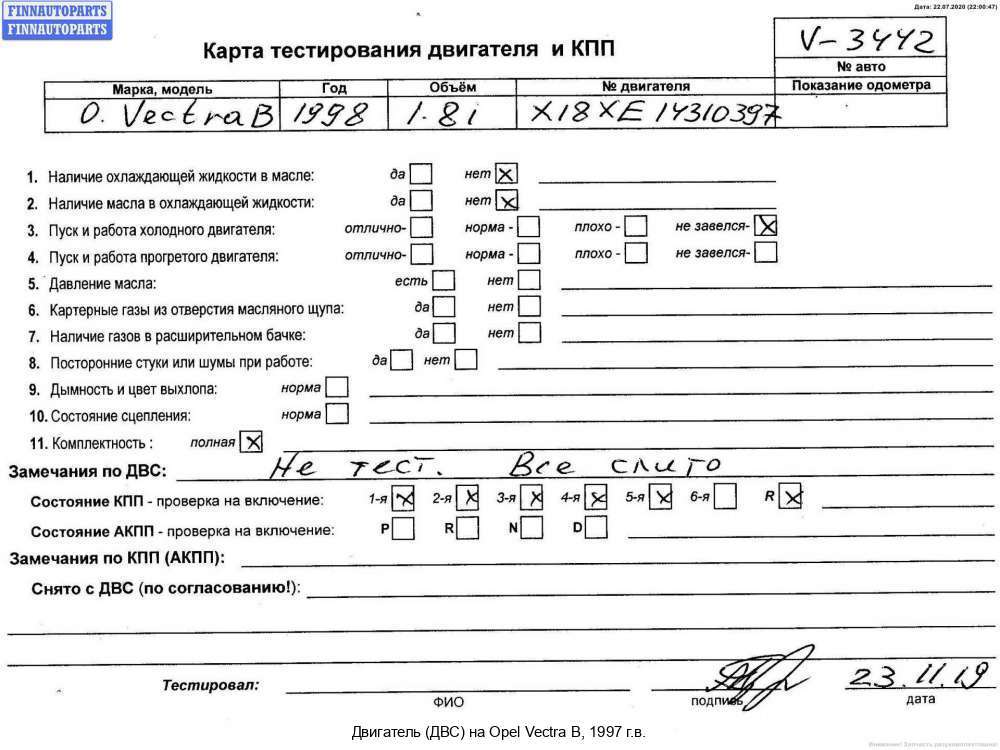 FINNAUTOPARTS
FINNAUTOPARTS
Дата: 22.07.2020 (22:00:47)
Карта тестирования двигателя и КПП
V-3442
№ авто
Марка, модель Год Объём № двигателя Показание одометра
O. Vectra B 1998 1.8i X18XE 14310397
1. Наличие охлаждающей жидкости в масле: да нет x
2. Наличие масла в охлаждающей жидкости: да нет x
3. Пуск и работа холодного двигателя: отлично- норма - плохо - не завелся- x
4. Пуск и работа прогретого двигателя: отлично- норма - плохо - не завелся-
5. Давление масла: есть нет
6. Картерные газы из отверстия масляного щупа: да нет
7. Наличие газов в расширительном бачке: да нет
8. Посторонние стуки или шумы при работе: да нет
9. Дымность и цвет выхлопа: норма
10. Состояние сцепления: норма
11. Комплектность : полная x
Замечания по ДВС: Не тест. Все слито
Состояние КПП - проверка на включение: 1-я x 2-я x 3-я x 4-я x 5-я x 6-я R x
Состояние АКПП - проверка на включение: P R N D
Замечания по КПП (АКПП):
Снято с ДВС (по согласованию!):
Тестировал: 23.11.19
ФИО подпись дата
Двигатель (ДВС) на Opel Vectra B, 1997 г.в.
Внимание! Запчасть разукомплектована!